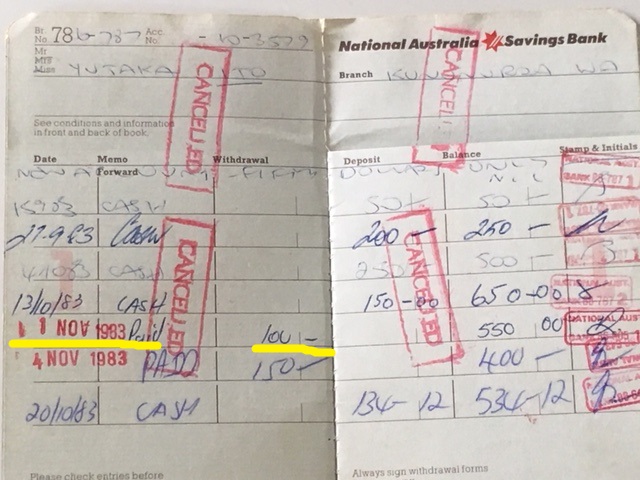 Br. No. 786-787 Acc. No. -10-3579
National Australia Savings Bank
Mr
Mrs
Miss YUTAKA ITO
Branch KUNUNURRA WA
See conditions and information
in front and back of book.
CANCELLED
CANCELLED
Date Memo Withdrawal Deposit Balance Stamp & Initials
Forward FIFTY DOLLARS ONLY
CASH 50 50
27-9-83 Cash 200 - 250 -
CASH 250 500 -
13/10/83 CASH 150-00 650-00
1 NOV 1983 Paid 100 - 550 00
4 NOV 1983 PAID 150 - 400 -
20/10/83 CASH 134-12 534-12
CANCELLED
CANCELLED
NATIONAL AUST
Please check entries before
Always sign withdrawal forms